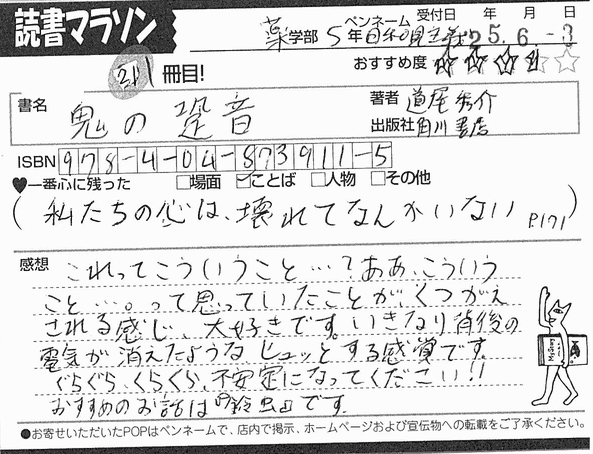 読書マラソン
ペンネーム 受付日 年 月 日
薬学部 5年 '25.6.-3
おすすめ度 ★★★☆☆
211冊目!
書名 鬼の跫音
著者 道尾秀介
出版社 角川書店
ISBN 978-4-04-873911-5
♥一番心に残った □場面 ☑ことば □人物 □その他
(私たちの心は、壊れてなんかいない P.171)
感想 これってこういうこと…?ああ、こういう
こと…。って思っていたことが、くつがえ
される感じ、大好きです。いきなり背後の
電気が消えたような ヒュッとする感覚です。
ぐらぐら、くらくら、不安定になってください!!
おすすめのお話は『鈴虫』です。
●お寄せいただいたPOPはペンネームで、店内で掲示、ホームページおよび宣伝物への転載をご了承ください。